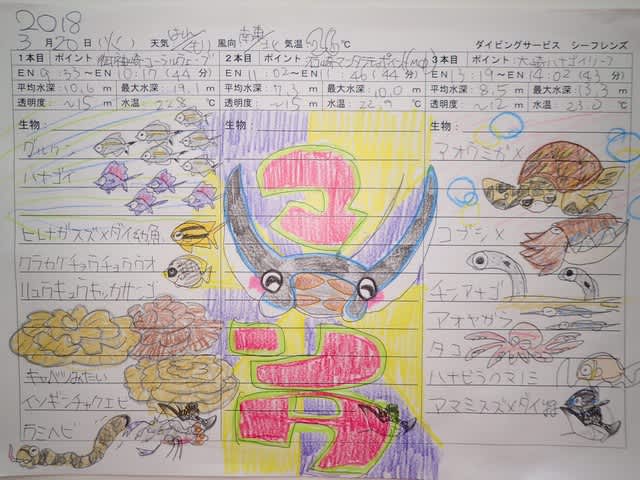 2018
3月20日(火) 天気 はれ/くもり 風向 南東/北 気温 26℃ ダイビングサービス シーフレンズ
1本目 ポイント
EN 9:33～EN 10:17(44分)
平均水深:10.6m 最大水深:19.1m
透明度:～15m 水温 22.8℃
生物:
グルクン
ハナゴイ
ヒレナガスズメダイ幼魚
クラカケチョウチョウウオ
リュウキュウキッカサンゴ
キャベツみたい
イソギンチャクエビ
ウミヘビ
2本目 ポイント 石崎マンタシティポイント
EN 11:02～EN 11:46(44分)
平均水深:7.3m 最大水深:10.0m
透明度:～15m 水温 22.9℃
生物:
マ
ンタ
3本目 ポイント 大崎ハナゴイリーフ
EN 13:19～EN 14:02(43分)
平均水深:8.5m 最大水深:13.3m
透明度:～12m 水温 23.0℃
生物:
アオウミガメ
コブシメ
チンアナゴ
アオヤガラ
タコ
ハナビラクマノミ
アマミスズメダイ